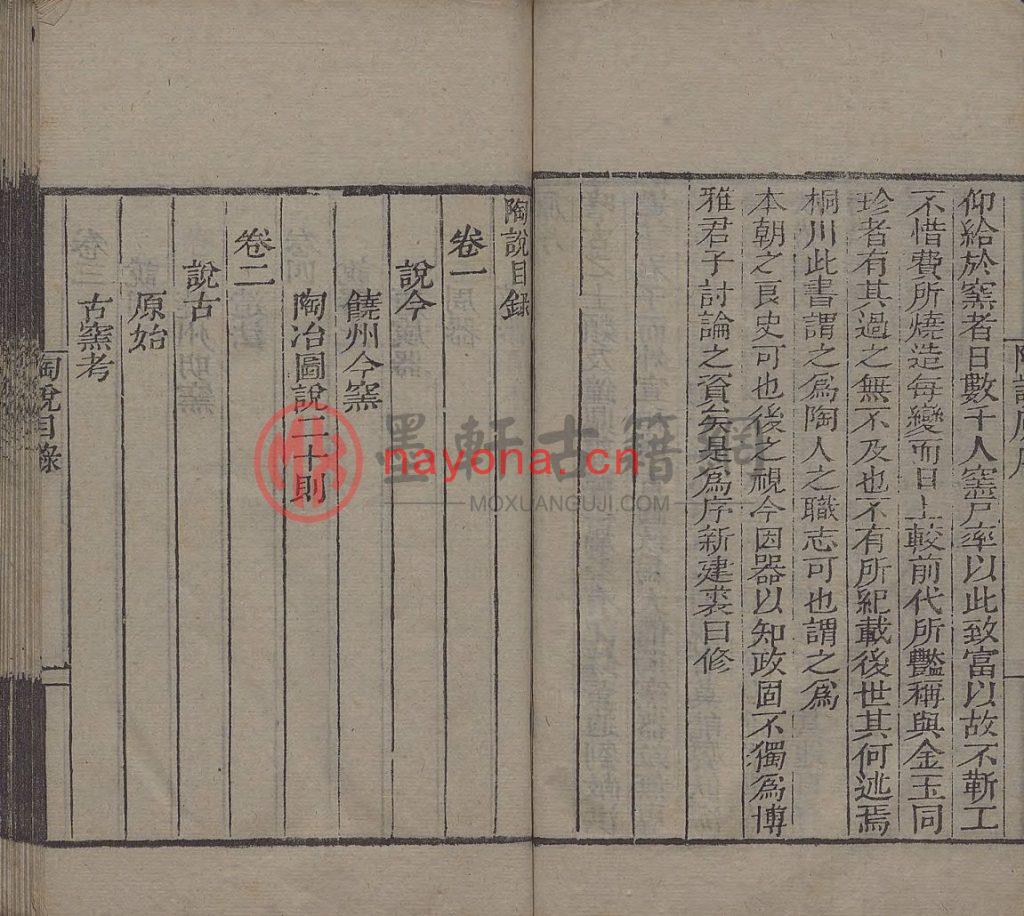 仰給於窯者日數千人窯戶率以此致富以故不靳工
不惜費所燒造每變而日上較前代所艷稱與金玉同
珍者有其過之無不及也不有所紀載後世其何述焉
桐川此書謂之為陶人之職志可也謂之為
本朝之良史可也後之視今因器以知政固不獨為博
雅君子討論之資矣是為序新建裘曰修
陶說目錄
卷一
說今
饒州今窯
陶冶圖說二十則
卷二
說古
原始
古窯考
陶說目錄
墨軒古籍網
nayona.cn
MOXUANGUJI.COM